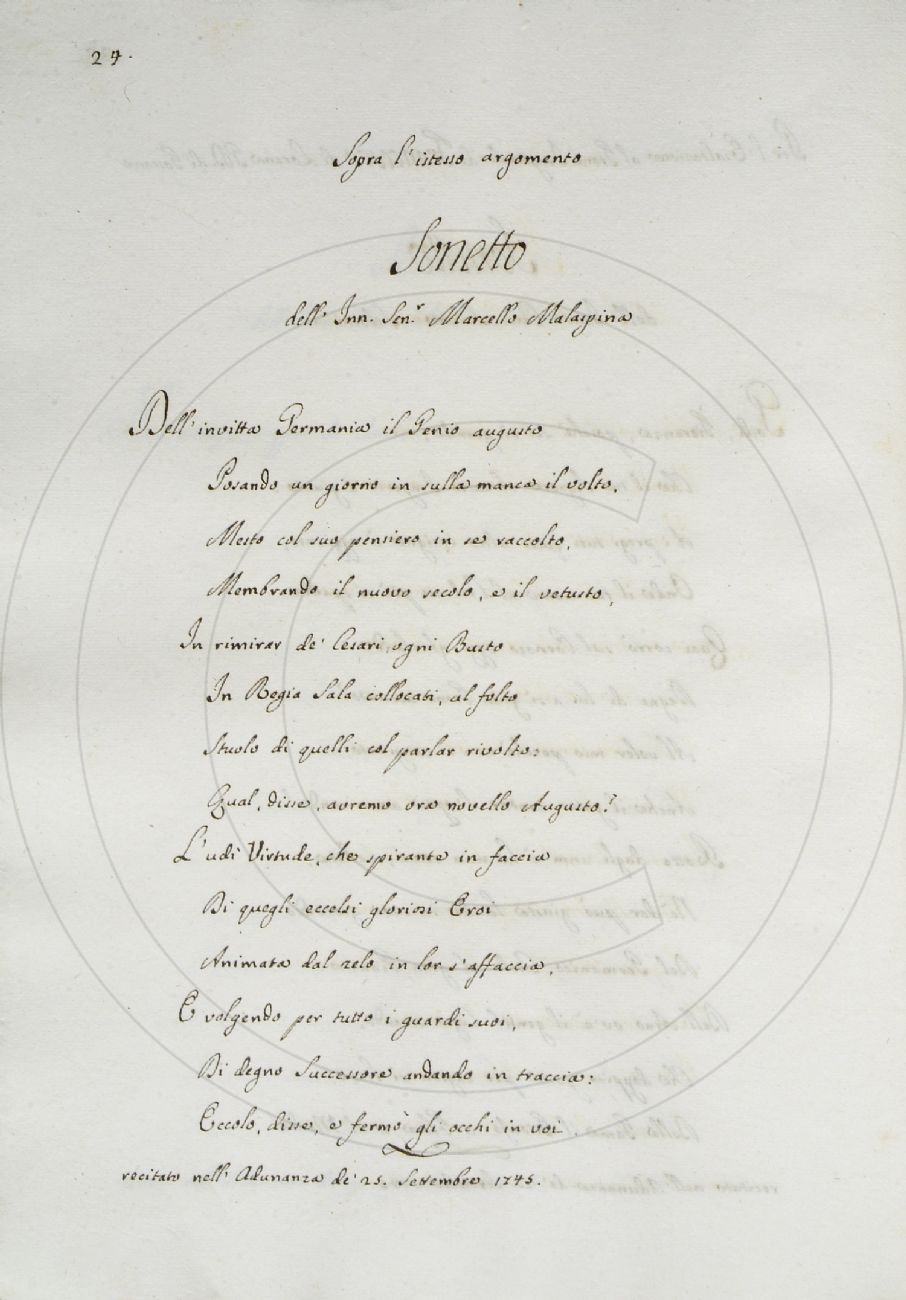 24.
Sopra l'istesso argomento
Sonetto
dell' Inn. Sen.r Marcello Malaspina
Dell' invitta Germania il Genio augusto
Posando un giorno in sulla manca il volto,
Mesto col suo pensiero in se raccolto,
Membrando il nuovo secolo, e il vetusto,
In rimirar de' Cesari ogni Busto
In Regia Sala collocati, al folto
Stuolo di quelli col parlar rivolto:
Qual, disse, avremo ora novello Augusto?
L'udì Virtude, che spirante in faccia
Di quegli eccelsi gloriosi Eroi
Animata dal zelo in lor s'affaccia,
E volgendo per tutto i guardi suoi,
Di degno Successore andando in traccia:
Eccolo, disse, e fermò gli occhi in voi.
recitato nell' Adunanza de' 25. Settembre 1745.